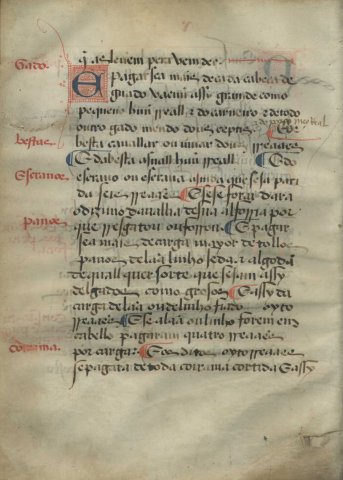 Gado.
q̃ as levem pera vemder.
E pagar sea mais de cada cabeça de
guado vacum assy grande como
pequeno huũ rreall. E do carneiro e de todo
outro gado meudo dous ceptis. E por
bestas
besta cavallar ou muar dous rreaaes
E da besta asnall huũ rreall. E do
Escravos
escravo ou escrava aimda que seja pari
da seis rreaaes. E se se forar dara
o dizimo da vallia de sua alforria por
panos
que rresgatou ou forrou. E pagar
sea mais de carga mayor de todos
panos de laã linho seda e algodã
de quall quer sorte que sejam assy
delgados como grosos. E assy da
carga de laã ou de linho fiado oyto
rreaaes. E se a laã ou linho forem em
cabello pagaram quatro rreaaes
coirama.
por carga. E os ditos oyto rreaaes
se pagara de toda coirama cortida e assy